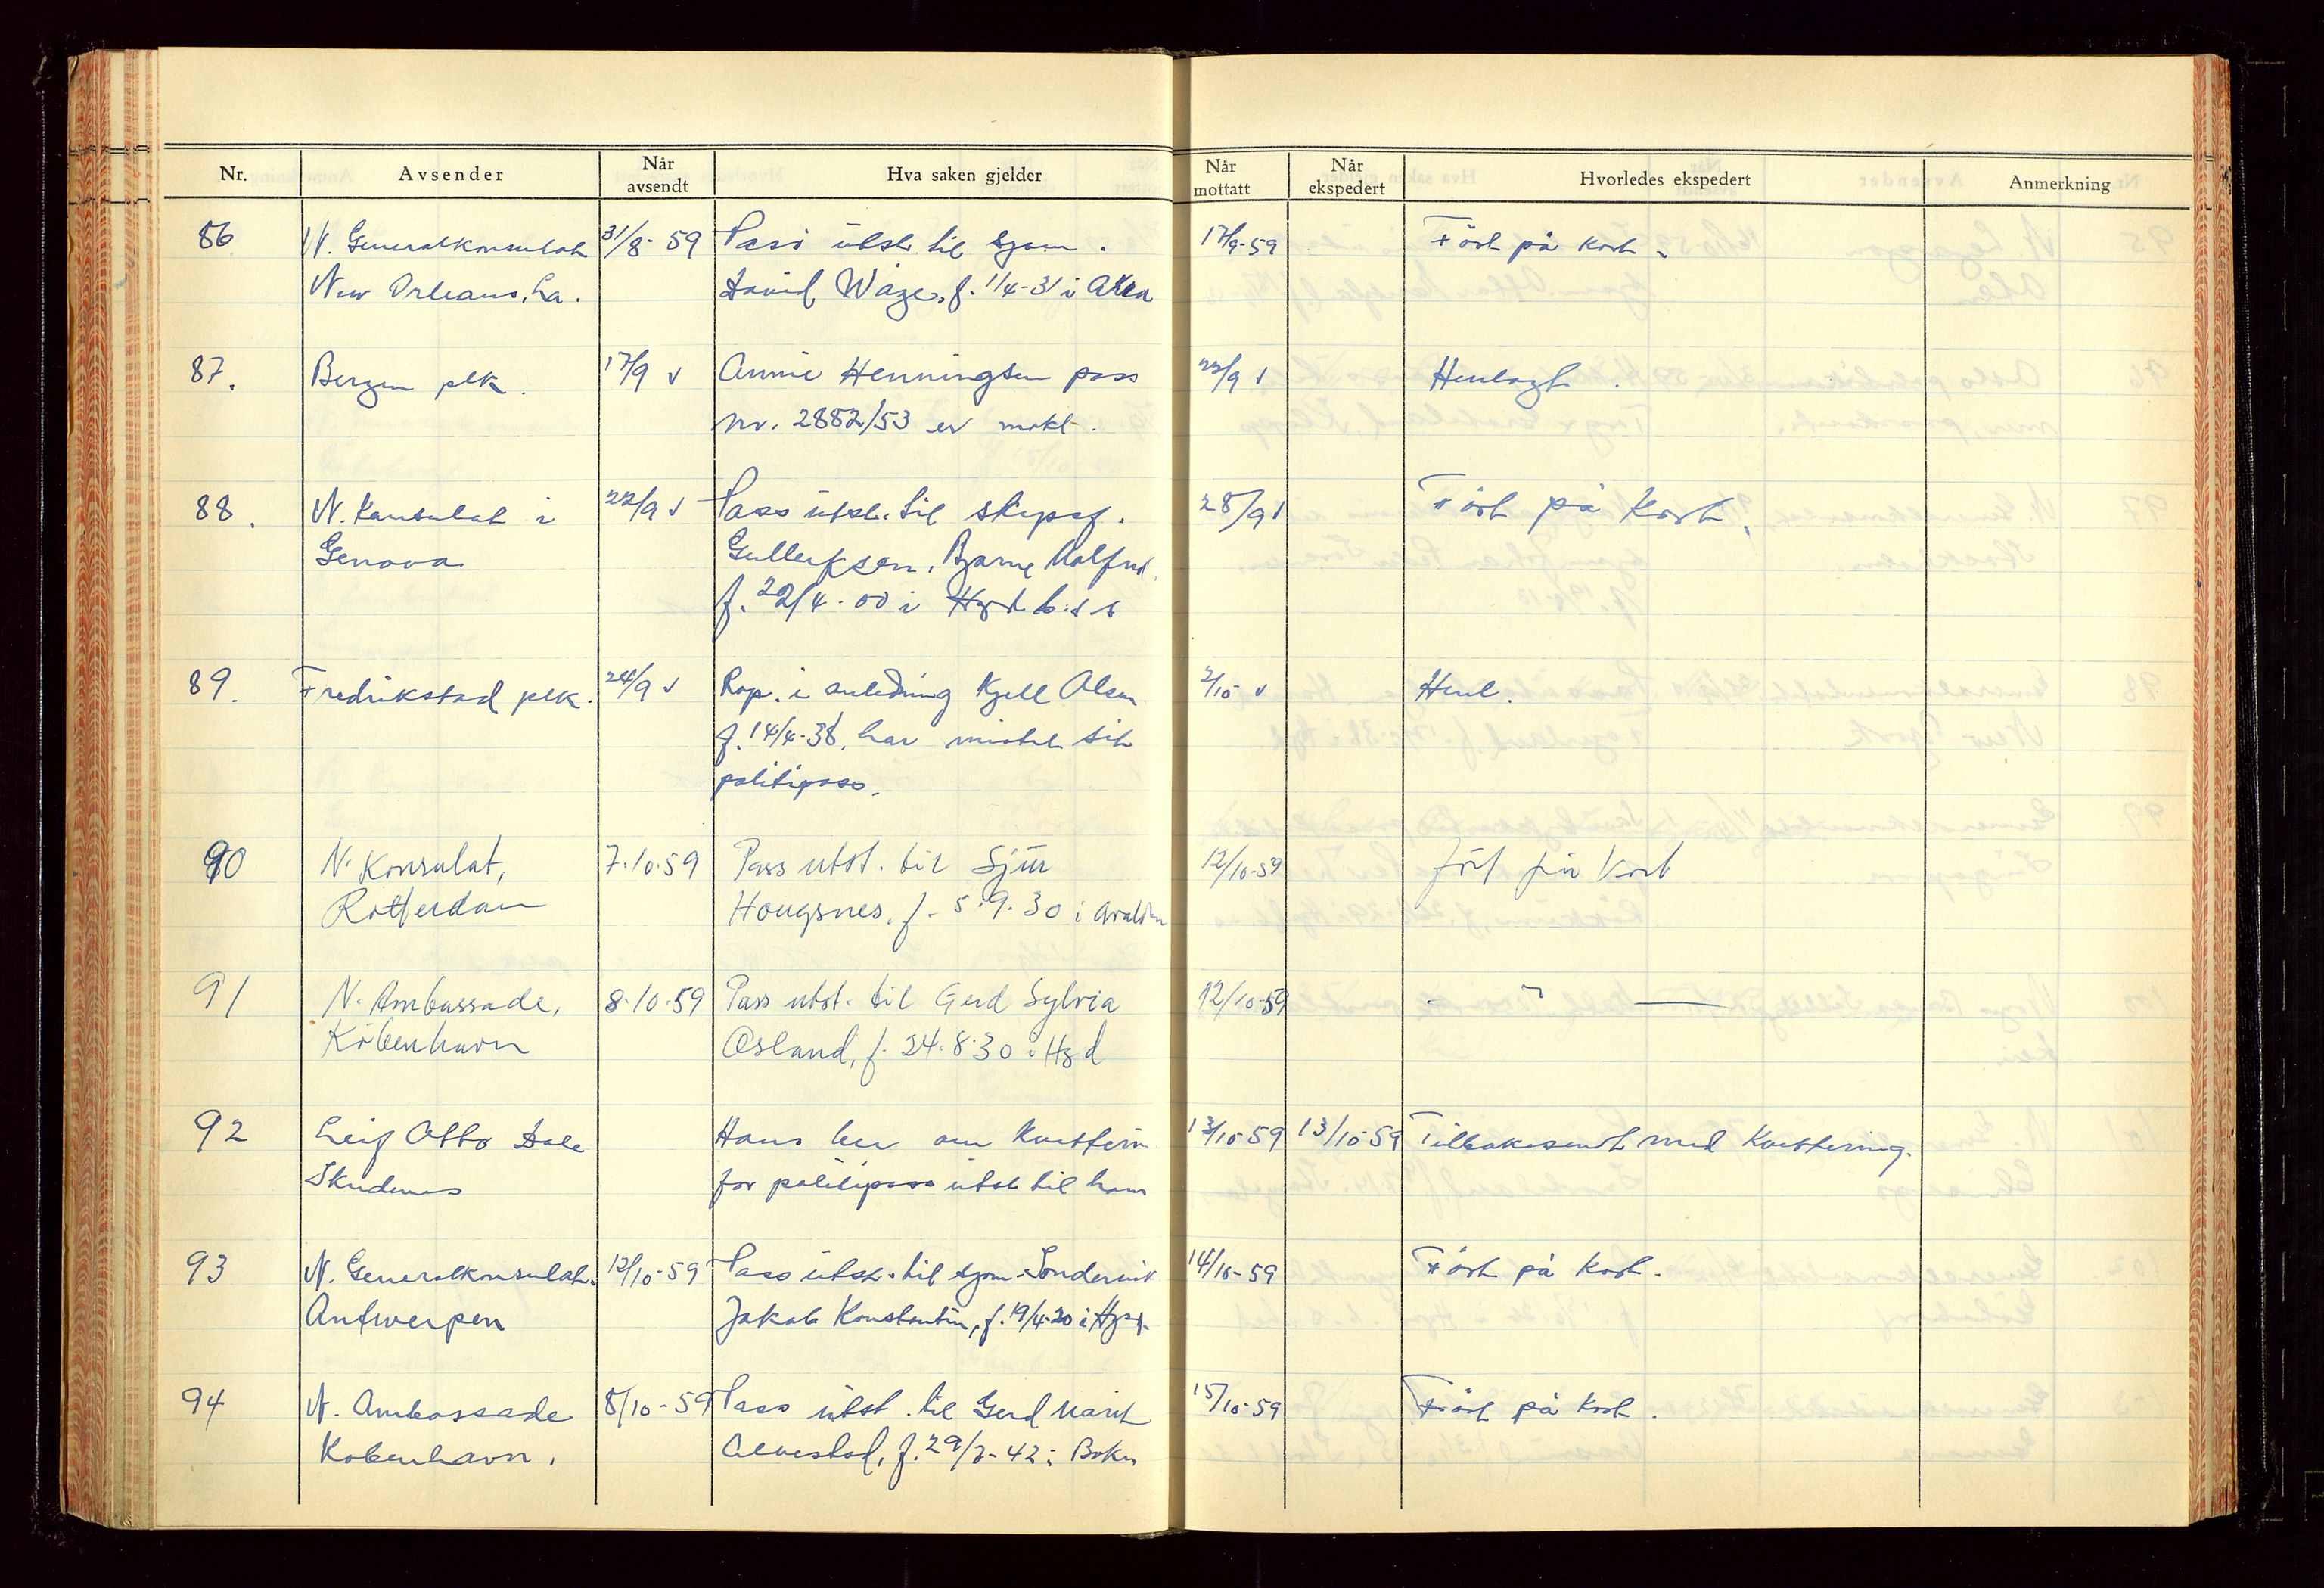 Nr. Avsender Når avsendt Hva saken gjelder Når mottatt Når ekspedert Hvorledes ekspedert Anmerkning
86 N. Generalkonsulat 31/8-59 Pass utst. til sjøm. 17/9-59 Ført på kort.
New Orleans, La. David Wage, f. 1/4-31 i
87. Bergen plk. 17/9 v Annie Henningsen pass 22/9 v Henlagt.
nr. 2882/53 er makt.
88. N. Konsulat i 22/9 v Pass utst. til skipsf. 28/9 v Ført på kort.
Genova Gulleiksen, Bjarne
f. 22/4-00 i
89. Fredrikstad plk. 24/9 v Rap. i anledning Kjell Olsen 2/10 v Henl.
f. 14/4-38, har mistet sit
politipass.
90 N. Konsulat, 7.10.59 Pass utst. til Sjur 12/10-59 ført på kort
Rotterdam Hougsnes, f. 5.9.30 i
91 N. Ambassade, 8.10.59 Pass utst. til Gerd Sylvia 12/10-59 - " —
København Osland, f. 24.8.30 i Hgd
92 Leif Otto Dale Hans om kvittering 13/10-59 13/10-59 Tilbakesendt med kvittering.
Skudenes for politipass utst til ham
93 N. Generalkonsulat. 12/10-59 Pass utst. til sjøm. 14/10-59 Ført på kort.
Antwerpen Jakob Konstantin, f. 19/4-20 i
94 N. Ambassade 8/10-59 Pass utst. til Gerd Marit 15/10-59 Ført på kort.
København. Alvestad, f. 29/7-42 i Bokn